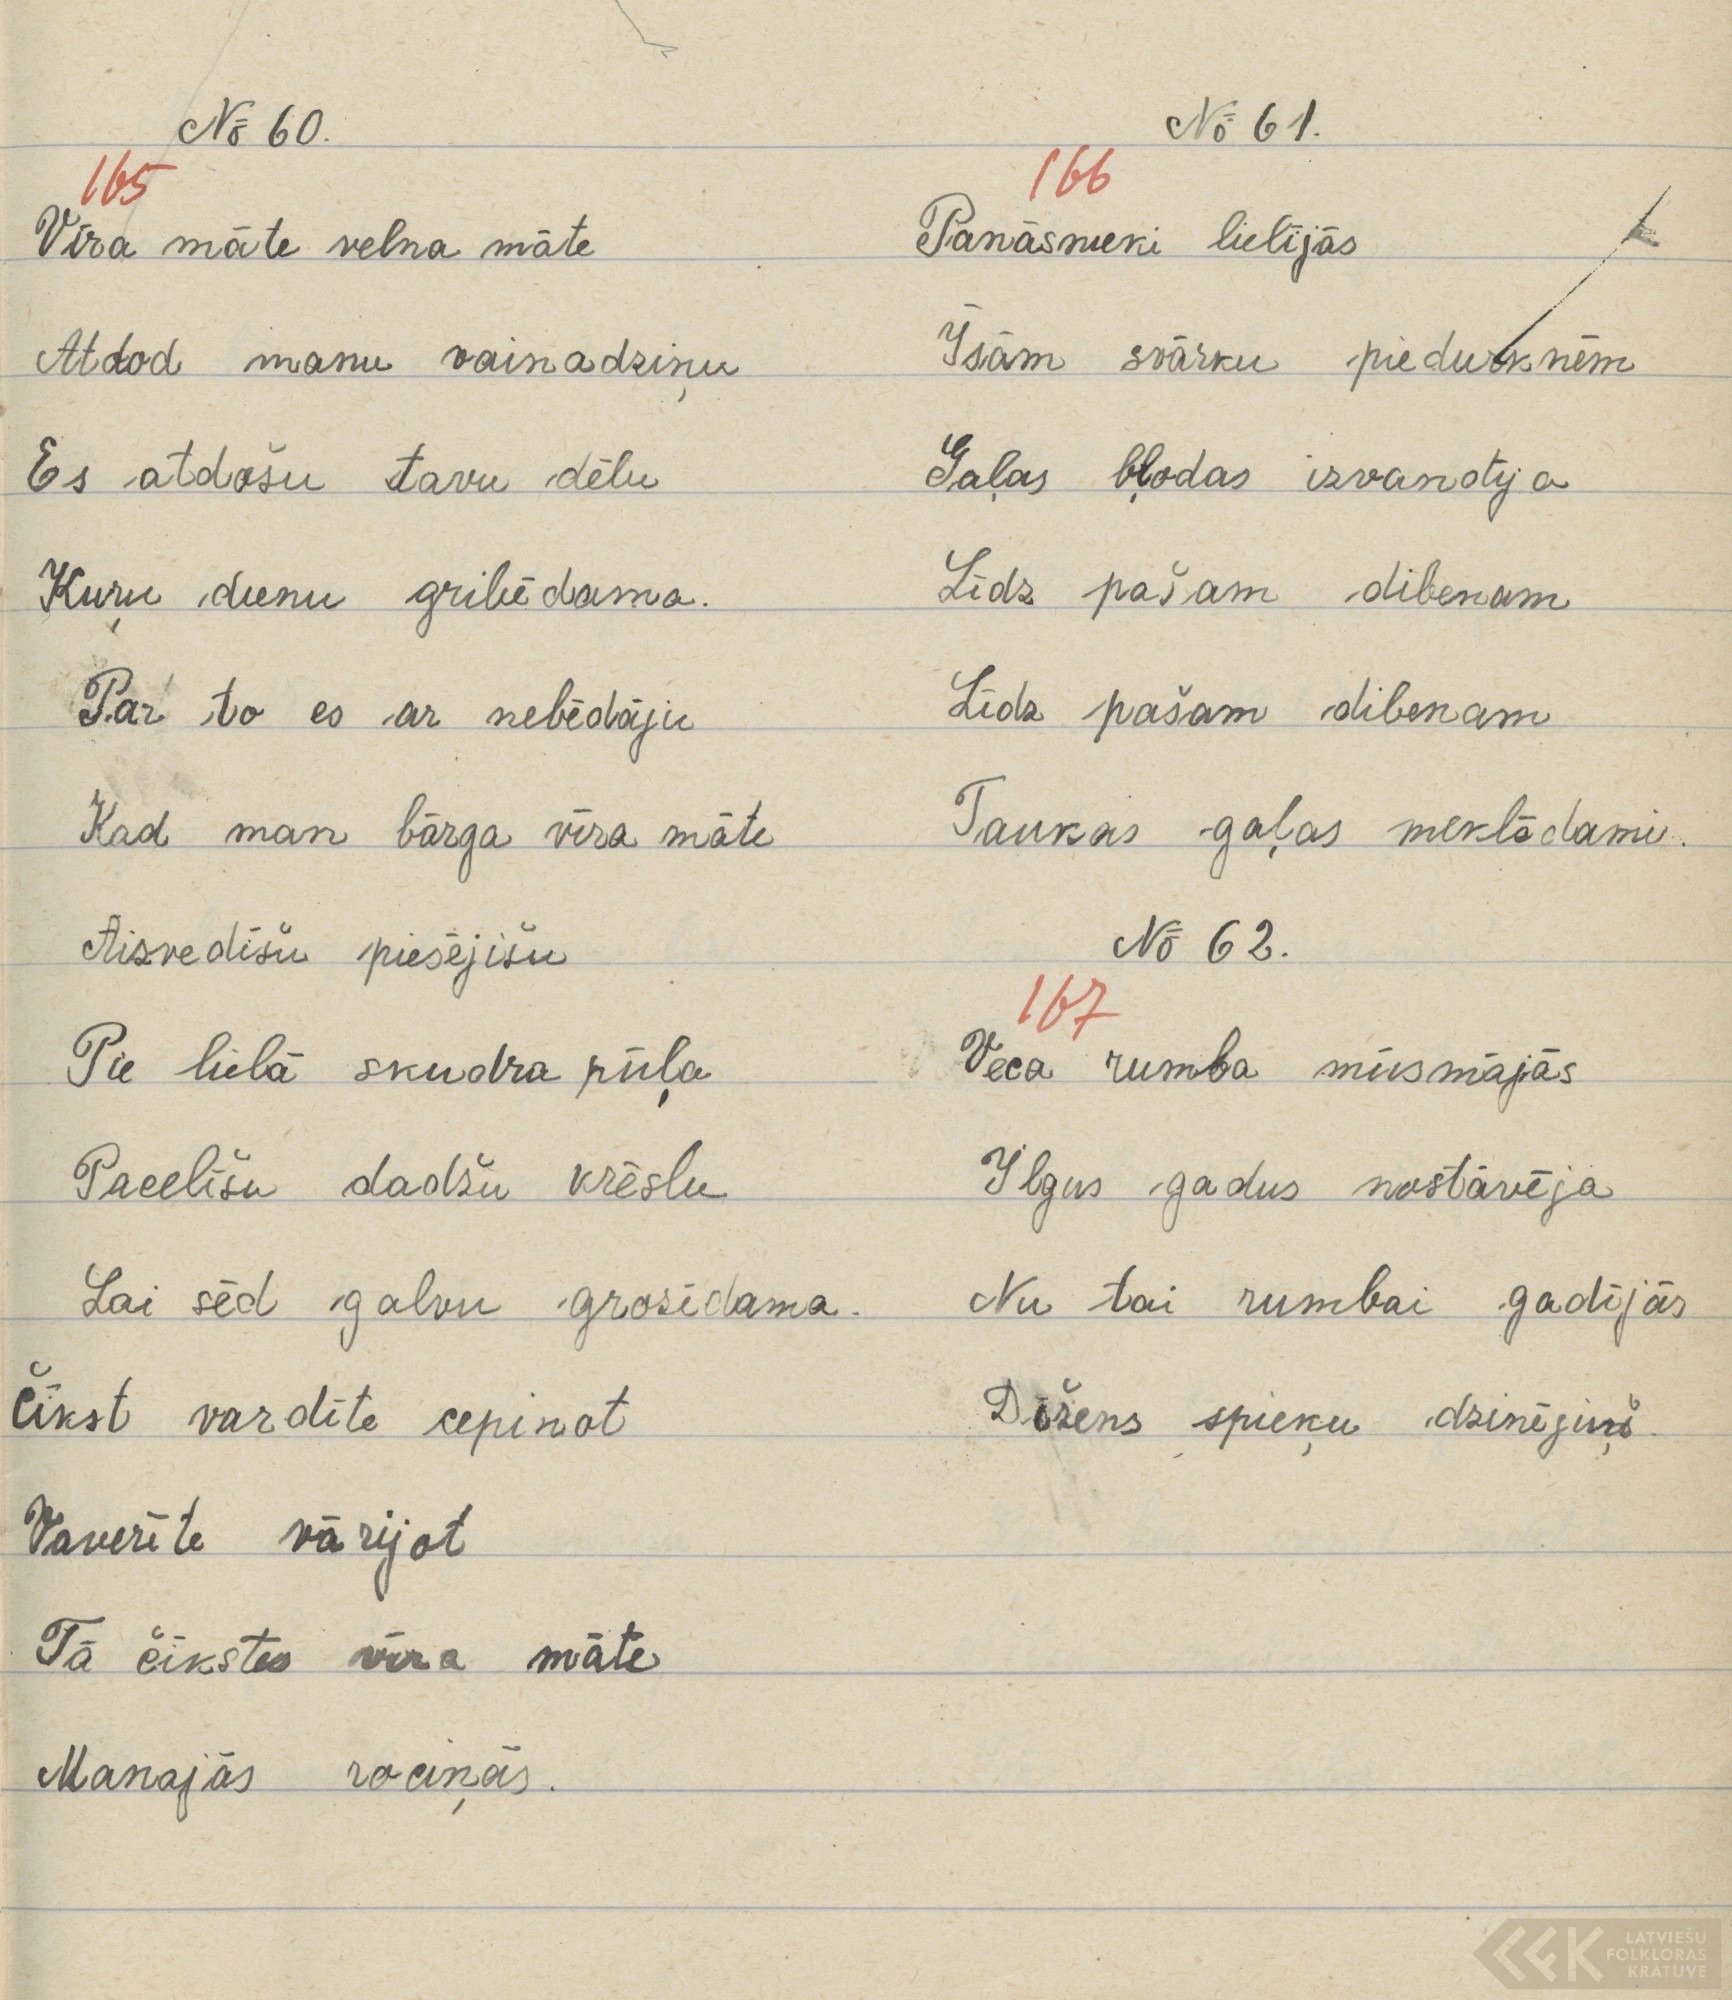 No 60.
165
Vīra māte velna māte
Atdod manu vainadziņu
Es atdošu tavu dēlu
Kuŗu dienu gribēdama.
Par to es ar nebēdāju
Kad man bārga vīra māte
Aizvedīšu piesējišu
Pie lielā skudra pūļa
Pacelīšu dadžu krēslu
Lai sēd galvu grozīdama.
Čīkst vardīte cepinot
Vaverīte vārijot
Tā čīkstes vīra māte
Manajās rociņās.
No 61.
166
Panāsnieki lielījās
Īsām svārku piedurknēm
Gaļas bļodas izvandīja
Līdz pašam dibenam
Līdz pašam dibenam
Taukas gaļas meklēdami.
No 62.
167
Veca rumba mūsmājās
Ilgus gadus nostāvēja
Nu tai rumbai gadījās
Dižens spieķu dzinējiņš.
LATVIEŠU
FOLKLORAS
KRĀTUVE